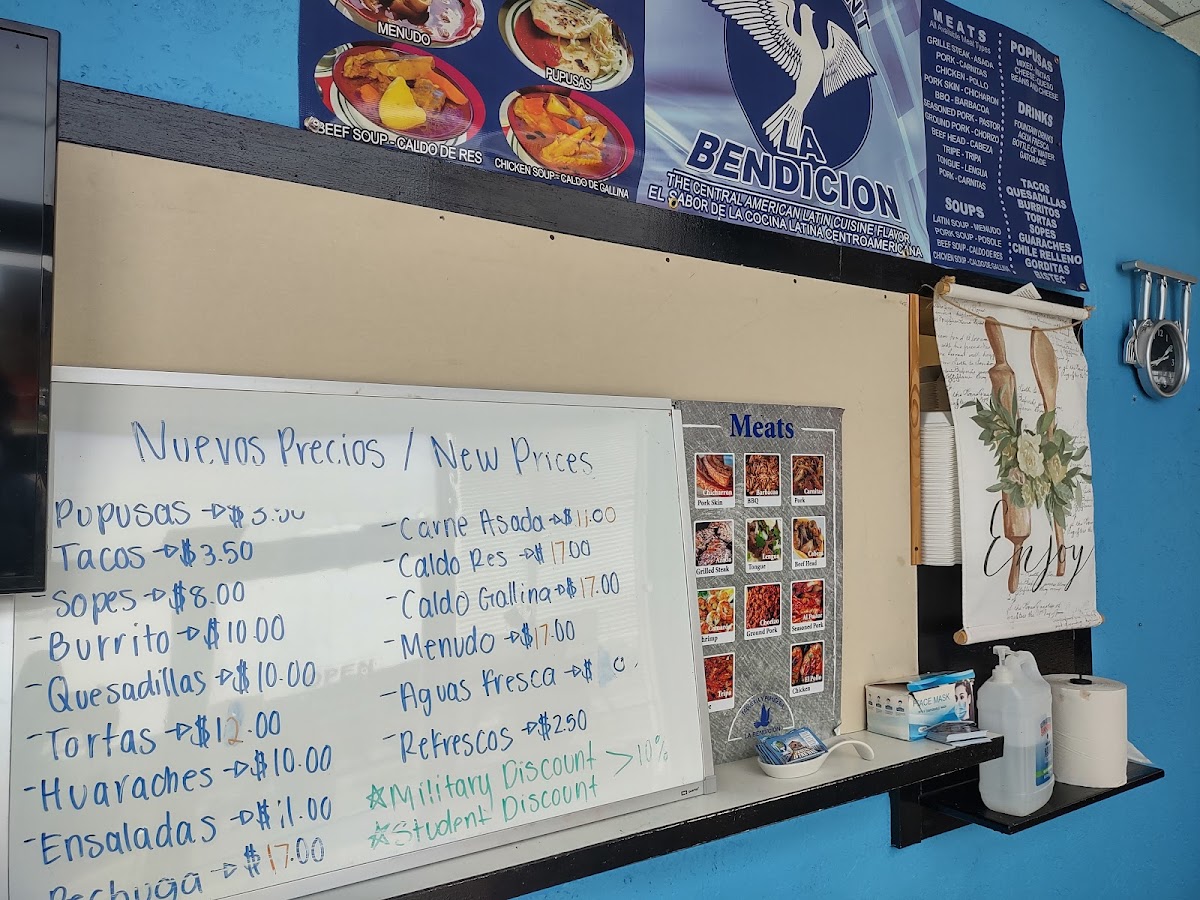 MENUDO
PUPUSAS
BEEF SOUP - CALDO DE RES
CHICKEN SOUP - CALDO DE GALLINA
LA
BENDICION
THE CENTRAL AMERICAN LATIN CUISINE FLAVOR
EL SABOR DE LA COCINA LATINA CENTROAMERICANA
MEATS
All Available Meat Types
GRILLE STEAK - ASADA
PORK - CARNITAS
CHICKEN - POLLO
PORK SKIN - CHICHARON
BBQ - BARBACOA
SEASONED PORK - PASTOR
GROUND PORK - CHORIZO
BEEF HEAD - CABEZA
TRIPE - TRIPA
TONGUE - LENGUA
PORK - CARNITAS
SOUPS
LATIN SOUP - MENUDO
PORK SOUP - POSOLE
BEEF SOUP - CALDO DE RES
CHICKEN SOUP - CALDO DE GALLINA
POPUSAS
CHEESE - QUESO
BEANS AND CHEESE
DRINKS
FOUNTAIN DRINKS
AGUA FRESCA
BOTTLE OF WATER
GATORADE
TACOS
QUESADILLAS
BURRITOS
TORTAS
SOPES
GUARACHES
CHILE RELLENO
GORDITAS
BISTEC
Nuevos Precios / New Prices
Pupusas
Tacos → $3.50
Sopes → $8.00
- Burrito → $10.00
- Quesadillas → $10.00
- Tortas → $12.00
- Huaraches → $10.00
- Ensaladas → $11.00
Pechuga → $17.00
- Carne Asada → $11.00
- Caldo Res → $17.00
- Caldo Gallina → $17.00
- Menudo → $17.00
- Aguas fresca → $
- Refrescos → $2.50
☆ Military Discount > 10%
☆ Student Discount
Meats
Chicharron
Pork Skin
Barbacoa
BBQ
Carnitas
Pork
Asada
Grilled Steak
Lengua
Tongue
Cabeza
Beef Head
Shrimp
Chorizo
Ground Pork
Al Pastor
Seasoned Pork
Tripa
El Pollo
Chicken
LA BENDICION
Enjoy
FACE MASK